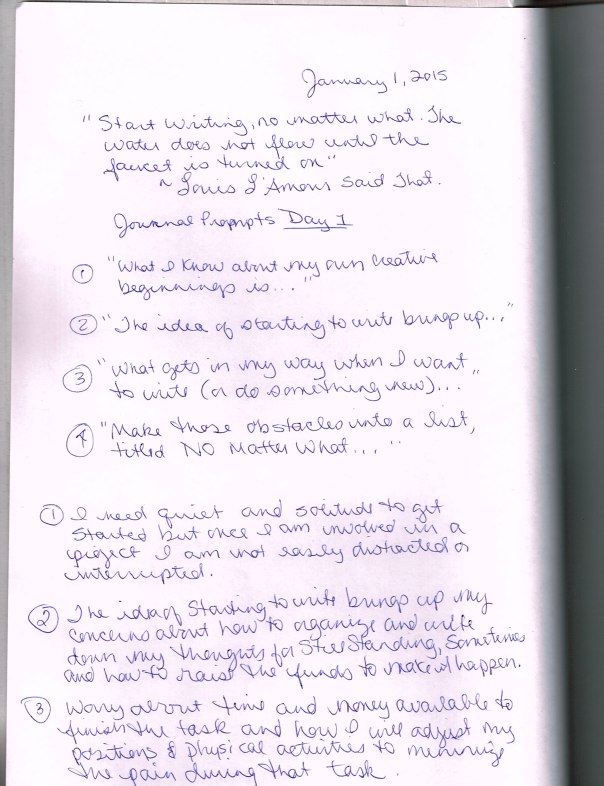 January 1, 2015
"Start writing, no matter what. The
water does not flow until the
faucet is turned on"
~ Louis L'Amour said that.
Journal Prompts Day 1
① "What I know about my own creative
beginnings is... "
② "The idea of starting to write brings up..."
③ "What gets in my way when I want
to write (or do something new)..."
④ "Make those obstacles into a list,
titled NO Matter What... "
① I need quiet and solitude to get
started but once I am involved in a
project I am not easily distracted or
interrupted.
② The idea of Starting to write brings up my
concerns about how to organize and write
down my thoughts for Still Standing, Sometimes
and how to raise the funds to make it happen.
③ Worry about time and money available to
finish the task and how I will adjust my
positions & physical activities to minimize
the pain during that task.